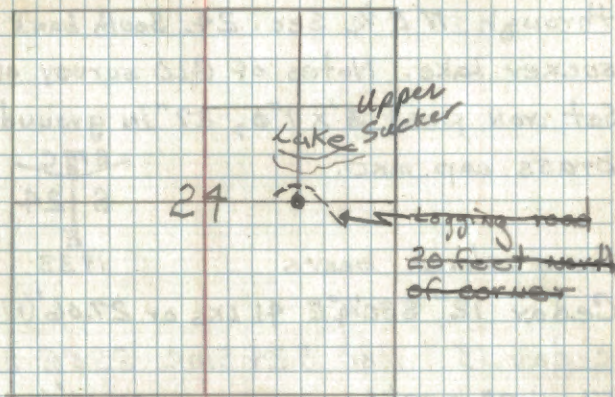 Upper
Lake Sucker
24
Logging road
20 feet north
of corner